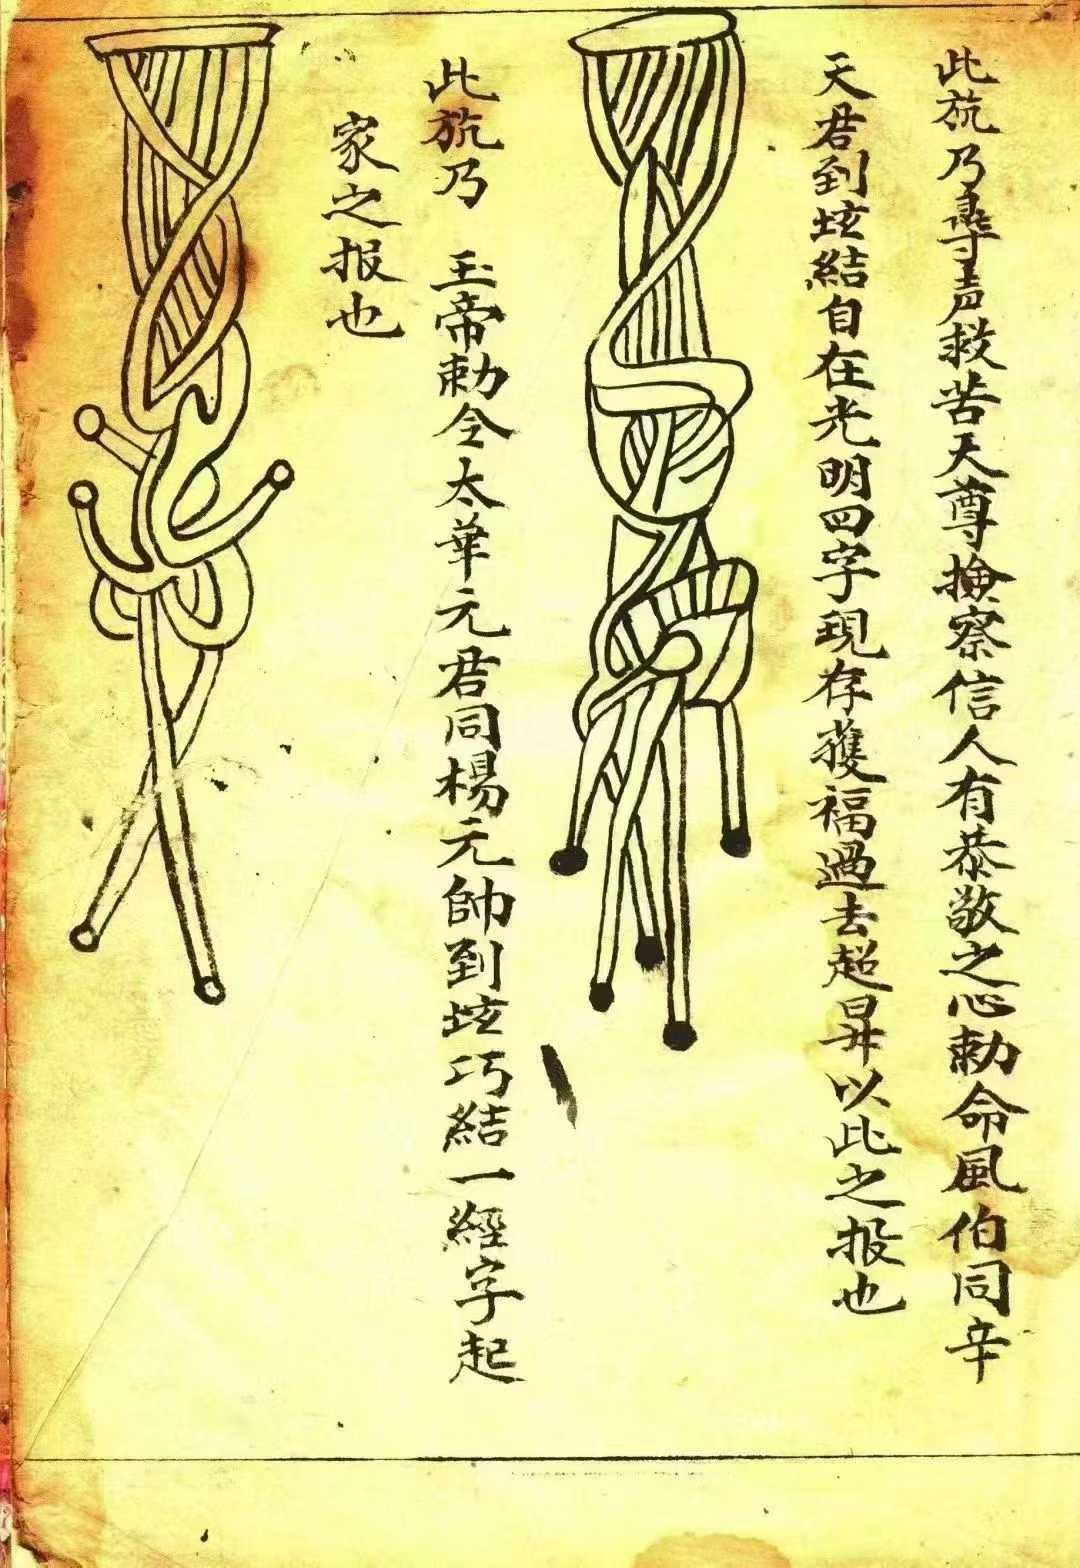 此旈乃尋声救苦天尊撿察信人有恭敬之心勅命風伯同辛
天君到坛結自在光明四字現存獲福過去超昇以此之报也
此旈乃 玉帝勅令太華元君同楊元帥到坛巧結一經字起
家之报也